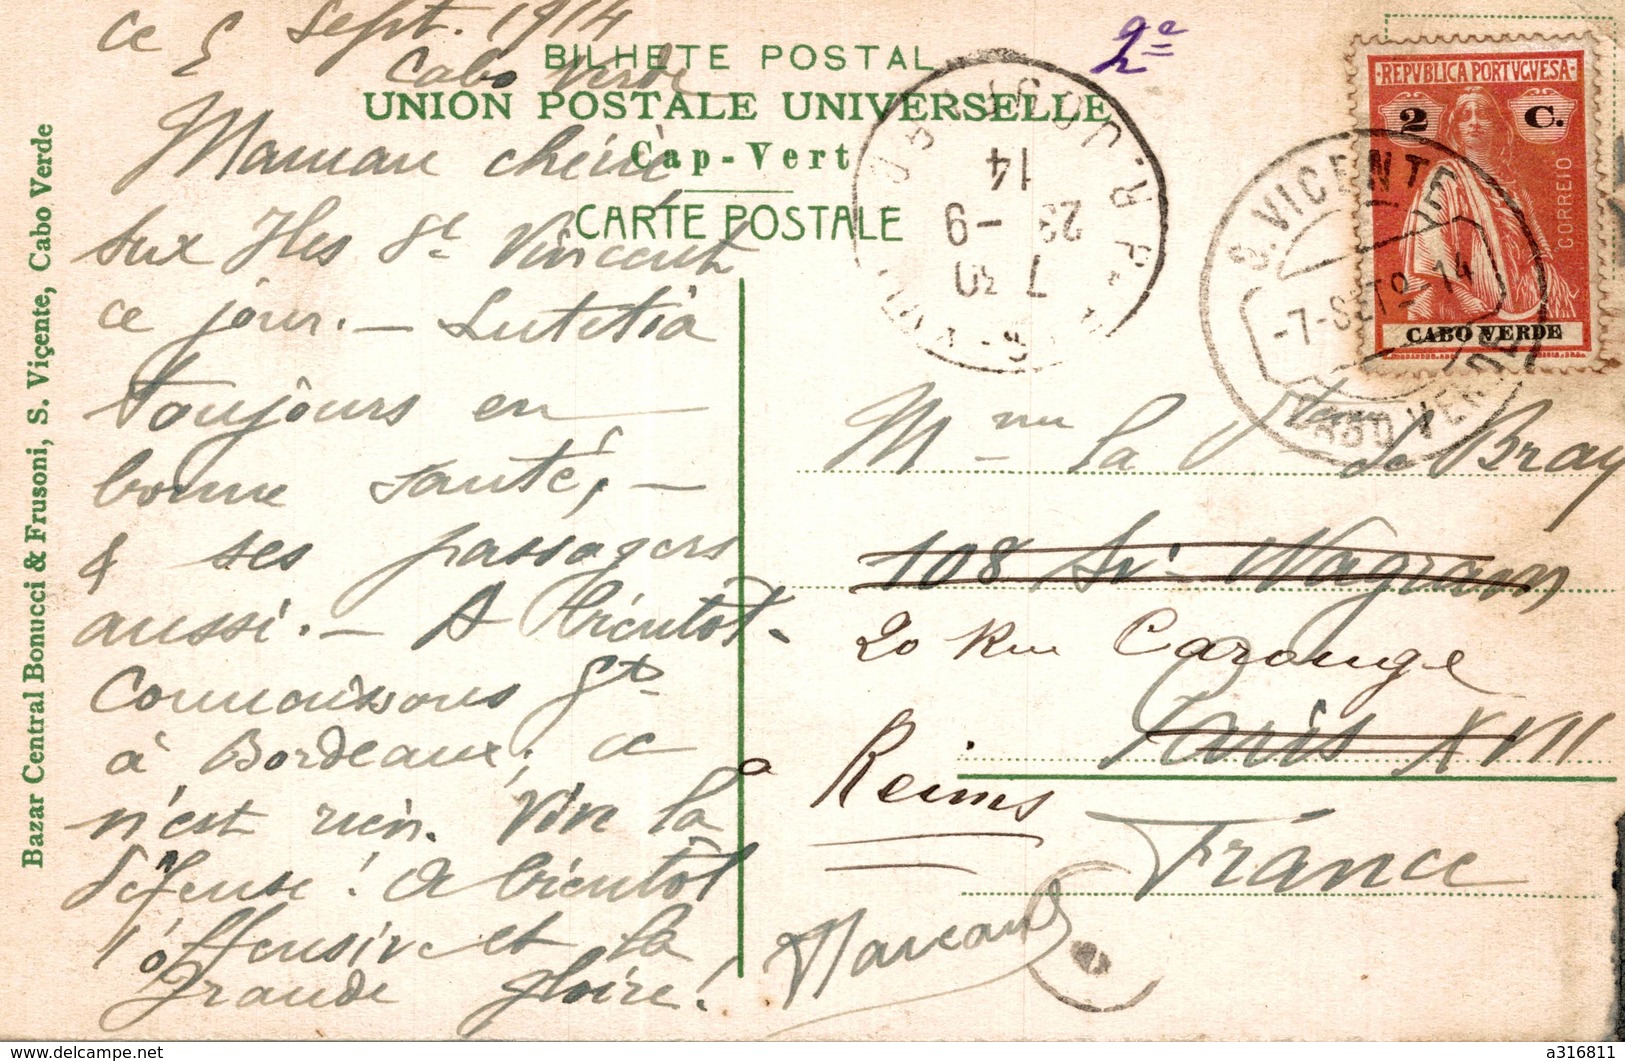 ce 5 Sept. 1914
Cabo Verde
BILHETE POSTAL
UNION POSTALE UNIVERSELLE
Cap-Vert
CARTE POSTALE
2e
Maman chérie
aux Iles St Vincent
ce jour. — Lutetia
toujours en
bonne santé, —
& ses passagers
aussi. — A bientôt -
Connaissons Gt
à Bordeaux; ce
n'est rien. Vive la
défense! A bientôt
l'offensive et la
grande gloire!
Marcan
REPVBLICA PORTVGVESA
2 C.
CORREIO
CABO VERDE
S. VICENTE
-7-SETO-14
CABO VERDE
7 30
23 - 9
14
Mme la de Bray
108 Av. Wagram
20 Rue Carouge
Paris XVII
à Reims
France
Bazar Central Bonucci & Frusoni, S. Viçente, Cabo Verde
delcampe.net
a316811